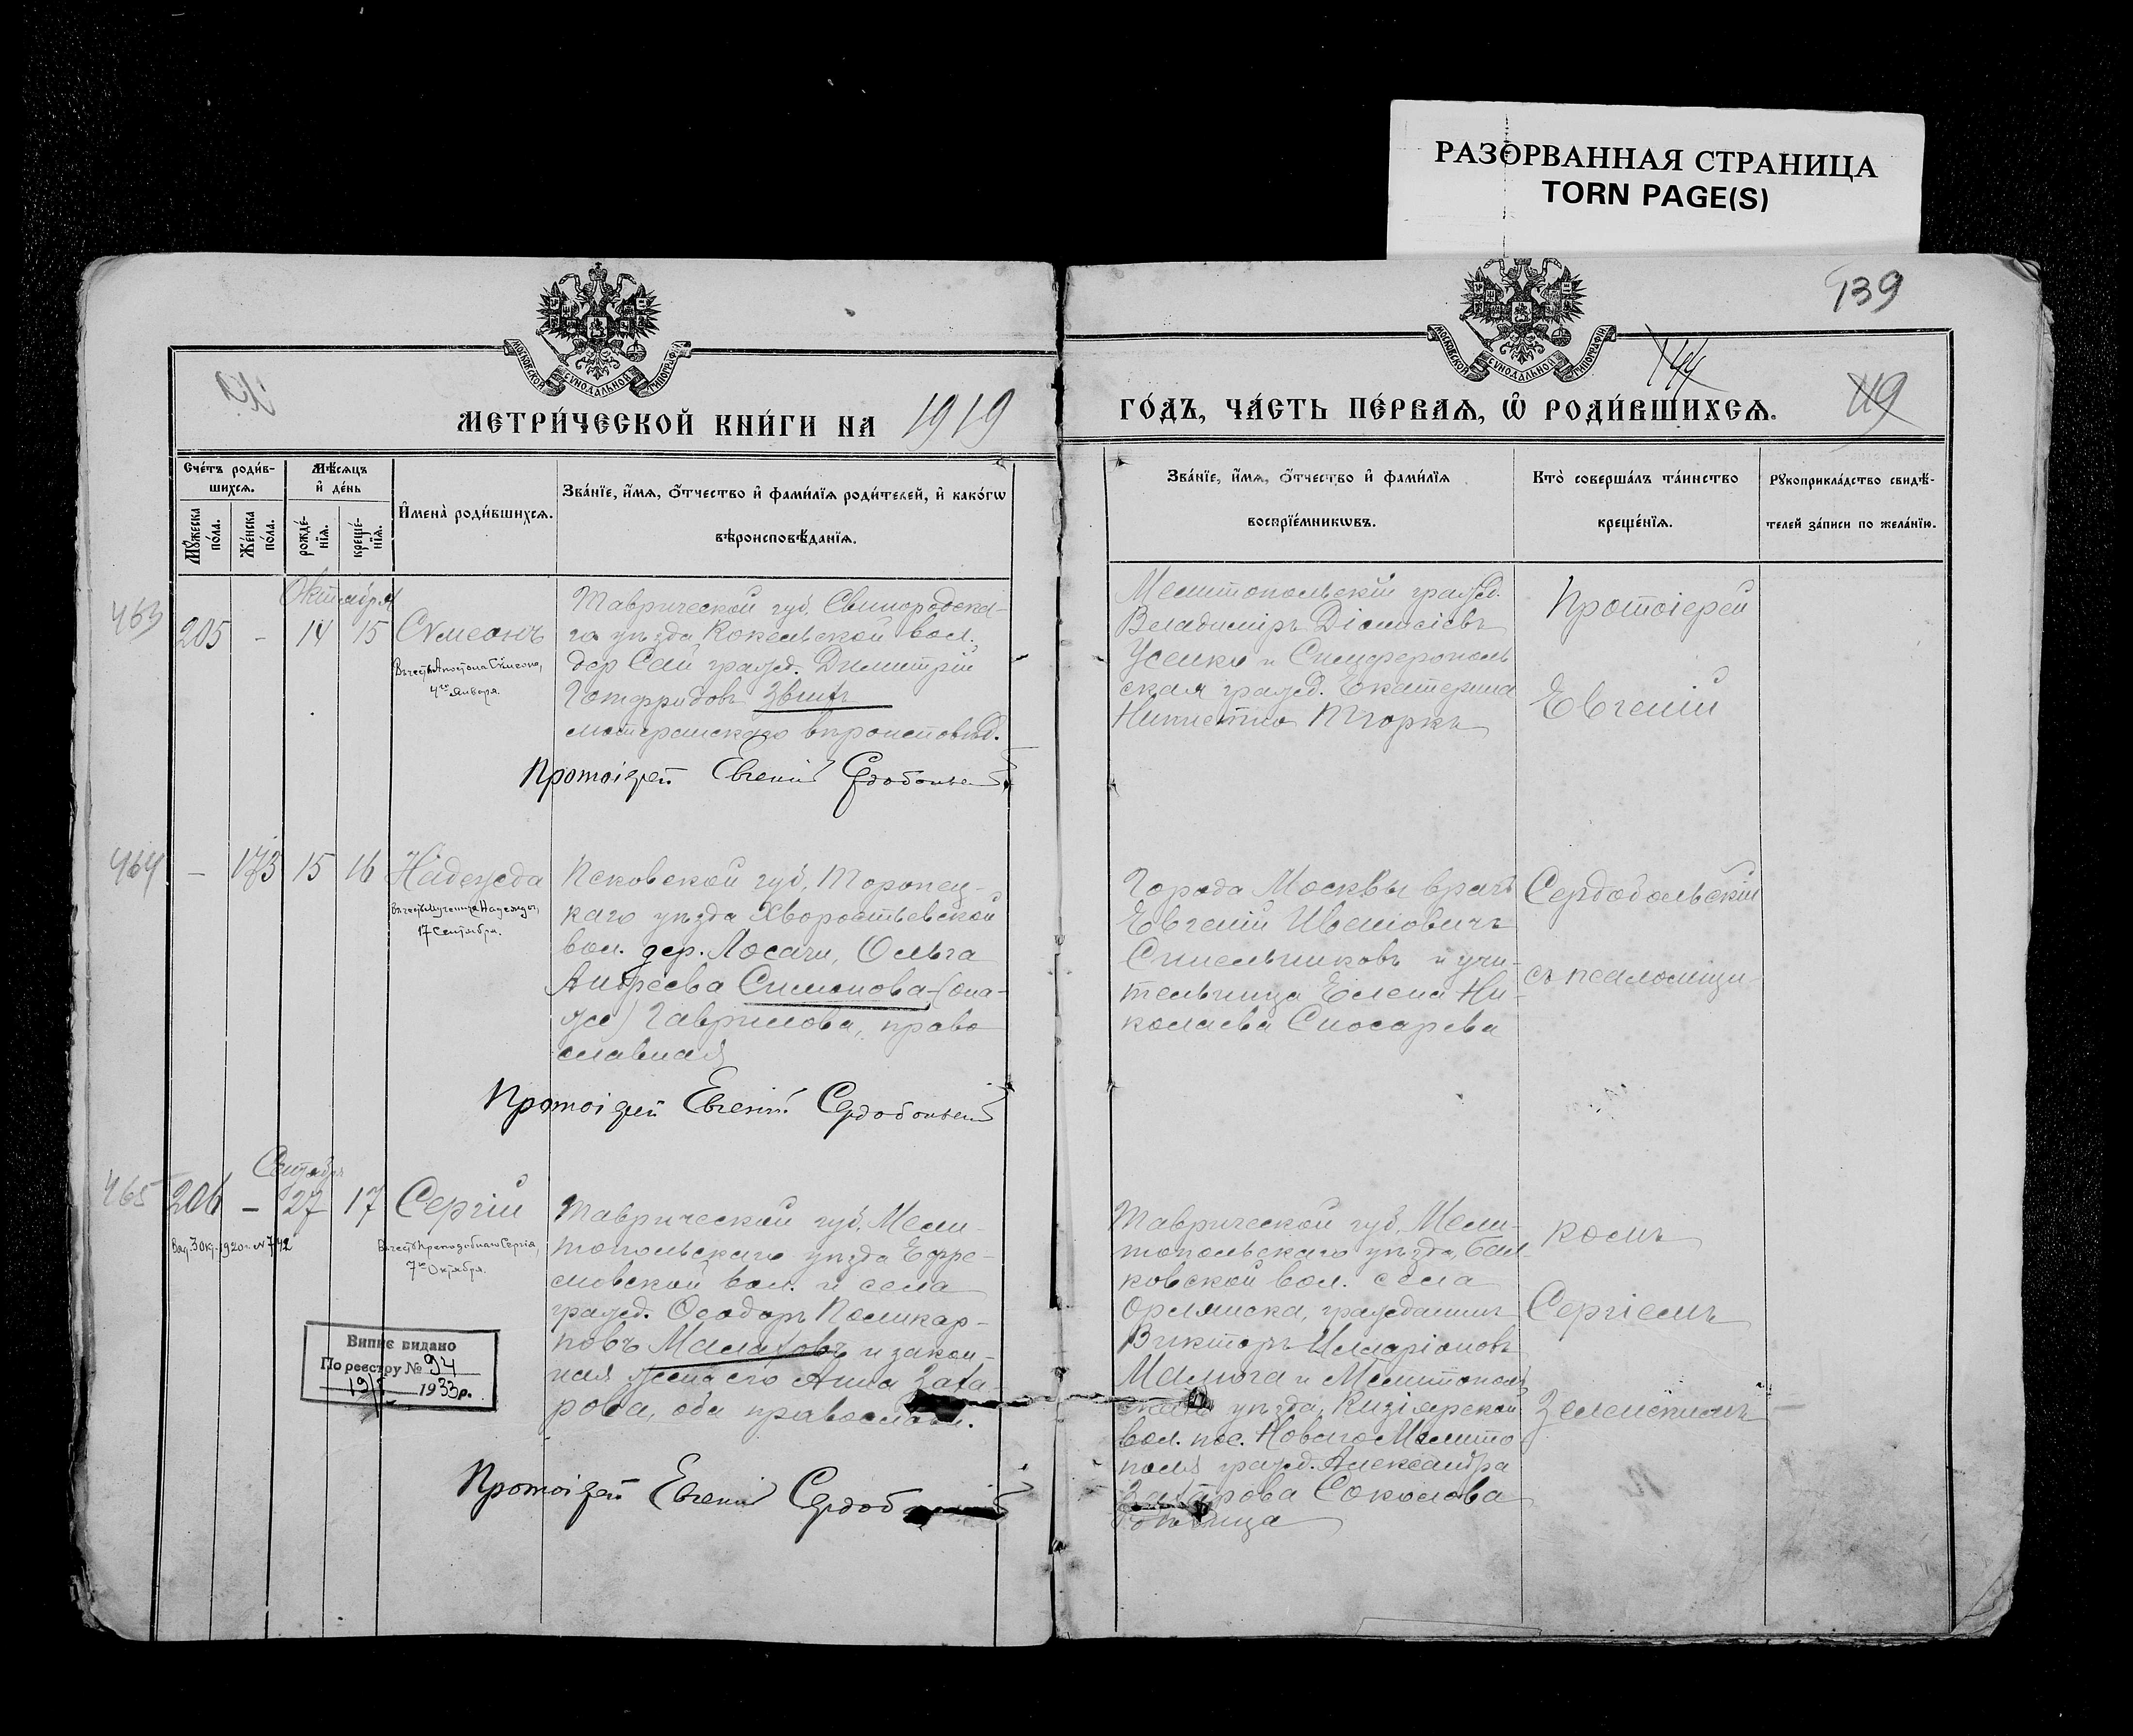 РАЗОРВАННАЯ СТРАНИЦА
TORN PAGE(S)
139
МОСКОВСКОЙ СѴНОДАЛЬНОЙ ТИПОГРАФІИ
МОСКОВСКОЙ СѴНОДАЛЬНОЙ ТИПОГРАФІИ
144
119
МЕТРИ́ЧЕСКОЙ КНИ́ГИ НА 1919
ГО́ДЪ, ЧА́СТЬ ПЕ́РВАѦ, Ѡ҆ РОДИ́ВШИХСѦ.
Сче́тъ роди́в-
шихсѧ.
Мꙋ́жеска по́ла.
Же́нска по́ла.
Мѣ́сѧцъ
и҆ де́нь
рожде́-
нїѧ.
креще́-
нїѧ.
И҆мена̀ роди́вшихсѧ.
Зва́нїе, и҆́мѧ, ѻ҆́тчество и҆ фами́лїѧ роди́телей, и҆ како́гѡ
вѣроисповѣ́данїѧ.
Зва́нїе, и҆́мѧ, ѻ҆́тчество и҆ фами́лїѧ
воспрїе́мникѡвъ.
Кто̀ соверша́лъ та́инство
креще́нїѧ.
Рꙋкоприкла́дство свидѣ́-
телей за́писи по жела́нїю.
Октября
463
205 - 14 15 Сѵмеонъ
Въ честь Апостола Сѵмеона,
4го Января.
Таврической губ.
го уѣзда Кокельской вол.
дер Сей гражд. Димитрій
Готфридовъ
лютеранскаго вѣроисповѣд.
Протоіерей Евгеній Сердобольскій
Мелитопольскій гражд.
Владиміръ Діонисіевъ
Усенко и Симферополь
ская гражд. Екатерина
Протоіерей
Евгеній
464
- 173 15 16 Надежда
Въ честь Мученицы Надежды,
17 Сентября.
Псковской губ, Торопец-
каго уѣзда Хворостьевской
вол. дер. Лосачи, Ольга
Андреева Симонова (она-
же) Гаврилова, право
славная
Протоіерей Евгеній Сердобольскій
Города Москвы врачъ
Евгеній Ивановичъ
Синельниковъ и учи-
тельница Елена Ни-
колаева Слюсарева
Сердобольскій
съ псаломщи-
Сентябрь
465
206 - 27 17 Сергій
Выд. 3 Окт. 1920 г. № 742
Въ честь Преподобнаго Сергія,
7го Октября.
Таврической губ, Мели-
топольскаго уѣзда Ефре-
мовской вол. и села
гражд. Ѳеодоръ Поликар-
повъ Малаховъ и закон-
ная жена его Анна Заха-
рова, оба православн.
Протоіерей Евгеній Сердоб
Таврической губ, Мели-
топольскаго уѣзда, Бал-
ковской вол. села
Орлянска, гражданинъ
Викторъ Илларіоновъ
Малюга и Мелитополь
скаго уѣзда, Кизіярской
вол. пос. Новаго Мелито
поля гражд. Александра
Захарова Соколова
комъ
Сергіемъ
Зеленскимъ
Випис видано
По реєстру № 94
1933 р.